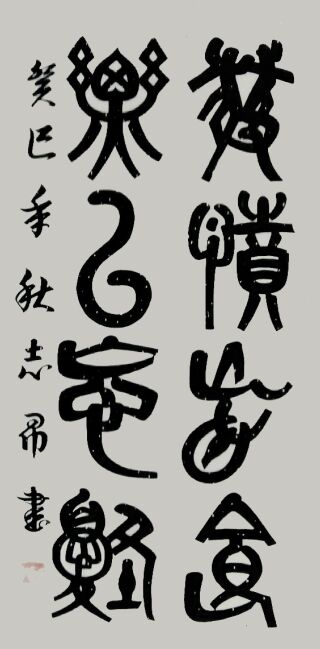 發憤忘食
樂以忘憂
癸巳年秋志昂書